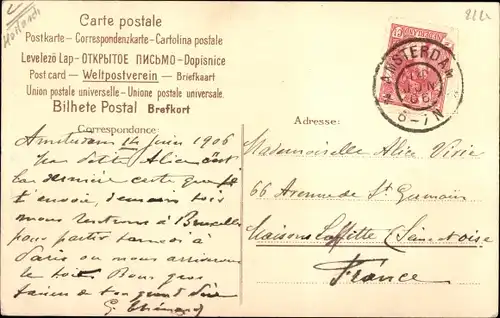 Holland
Carte postale
Postkarte — Correspondenzkarte — Cartolina postale
Levelező Lap — ОТКРЫТОЕ ПИСЬМО — Dopisnice
Post card — Weltpostverein — Briefkaart
Union postale universelle — Unione postale universale.
Bilhete Postal Brefkort
AMSTERDAM
6-7N
Correspondance
Adresse:
Amsterdam 14 Juin 1906
Ma Petite Alice c'est
la dernière carte que je
t'envoie, demain soir
nous rentrons à Bruxelles
pour partir samedi à
Paris ou nous arriverons
le soir. Bons
de ton grand
G.
Mademoiselle Alice
66 Avenue de St Germain
Maisons Laffitte (Seine et Oise)
France